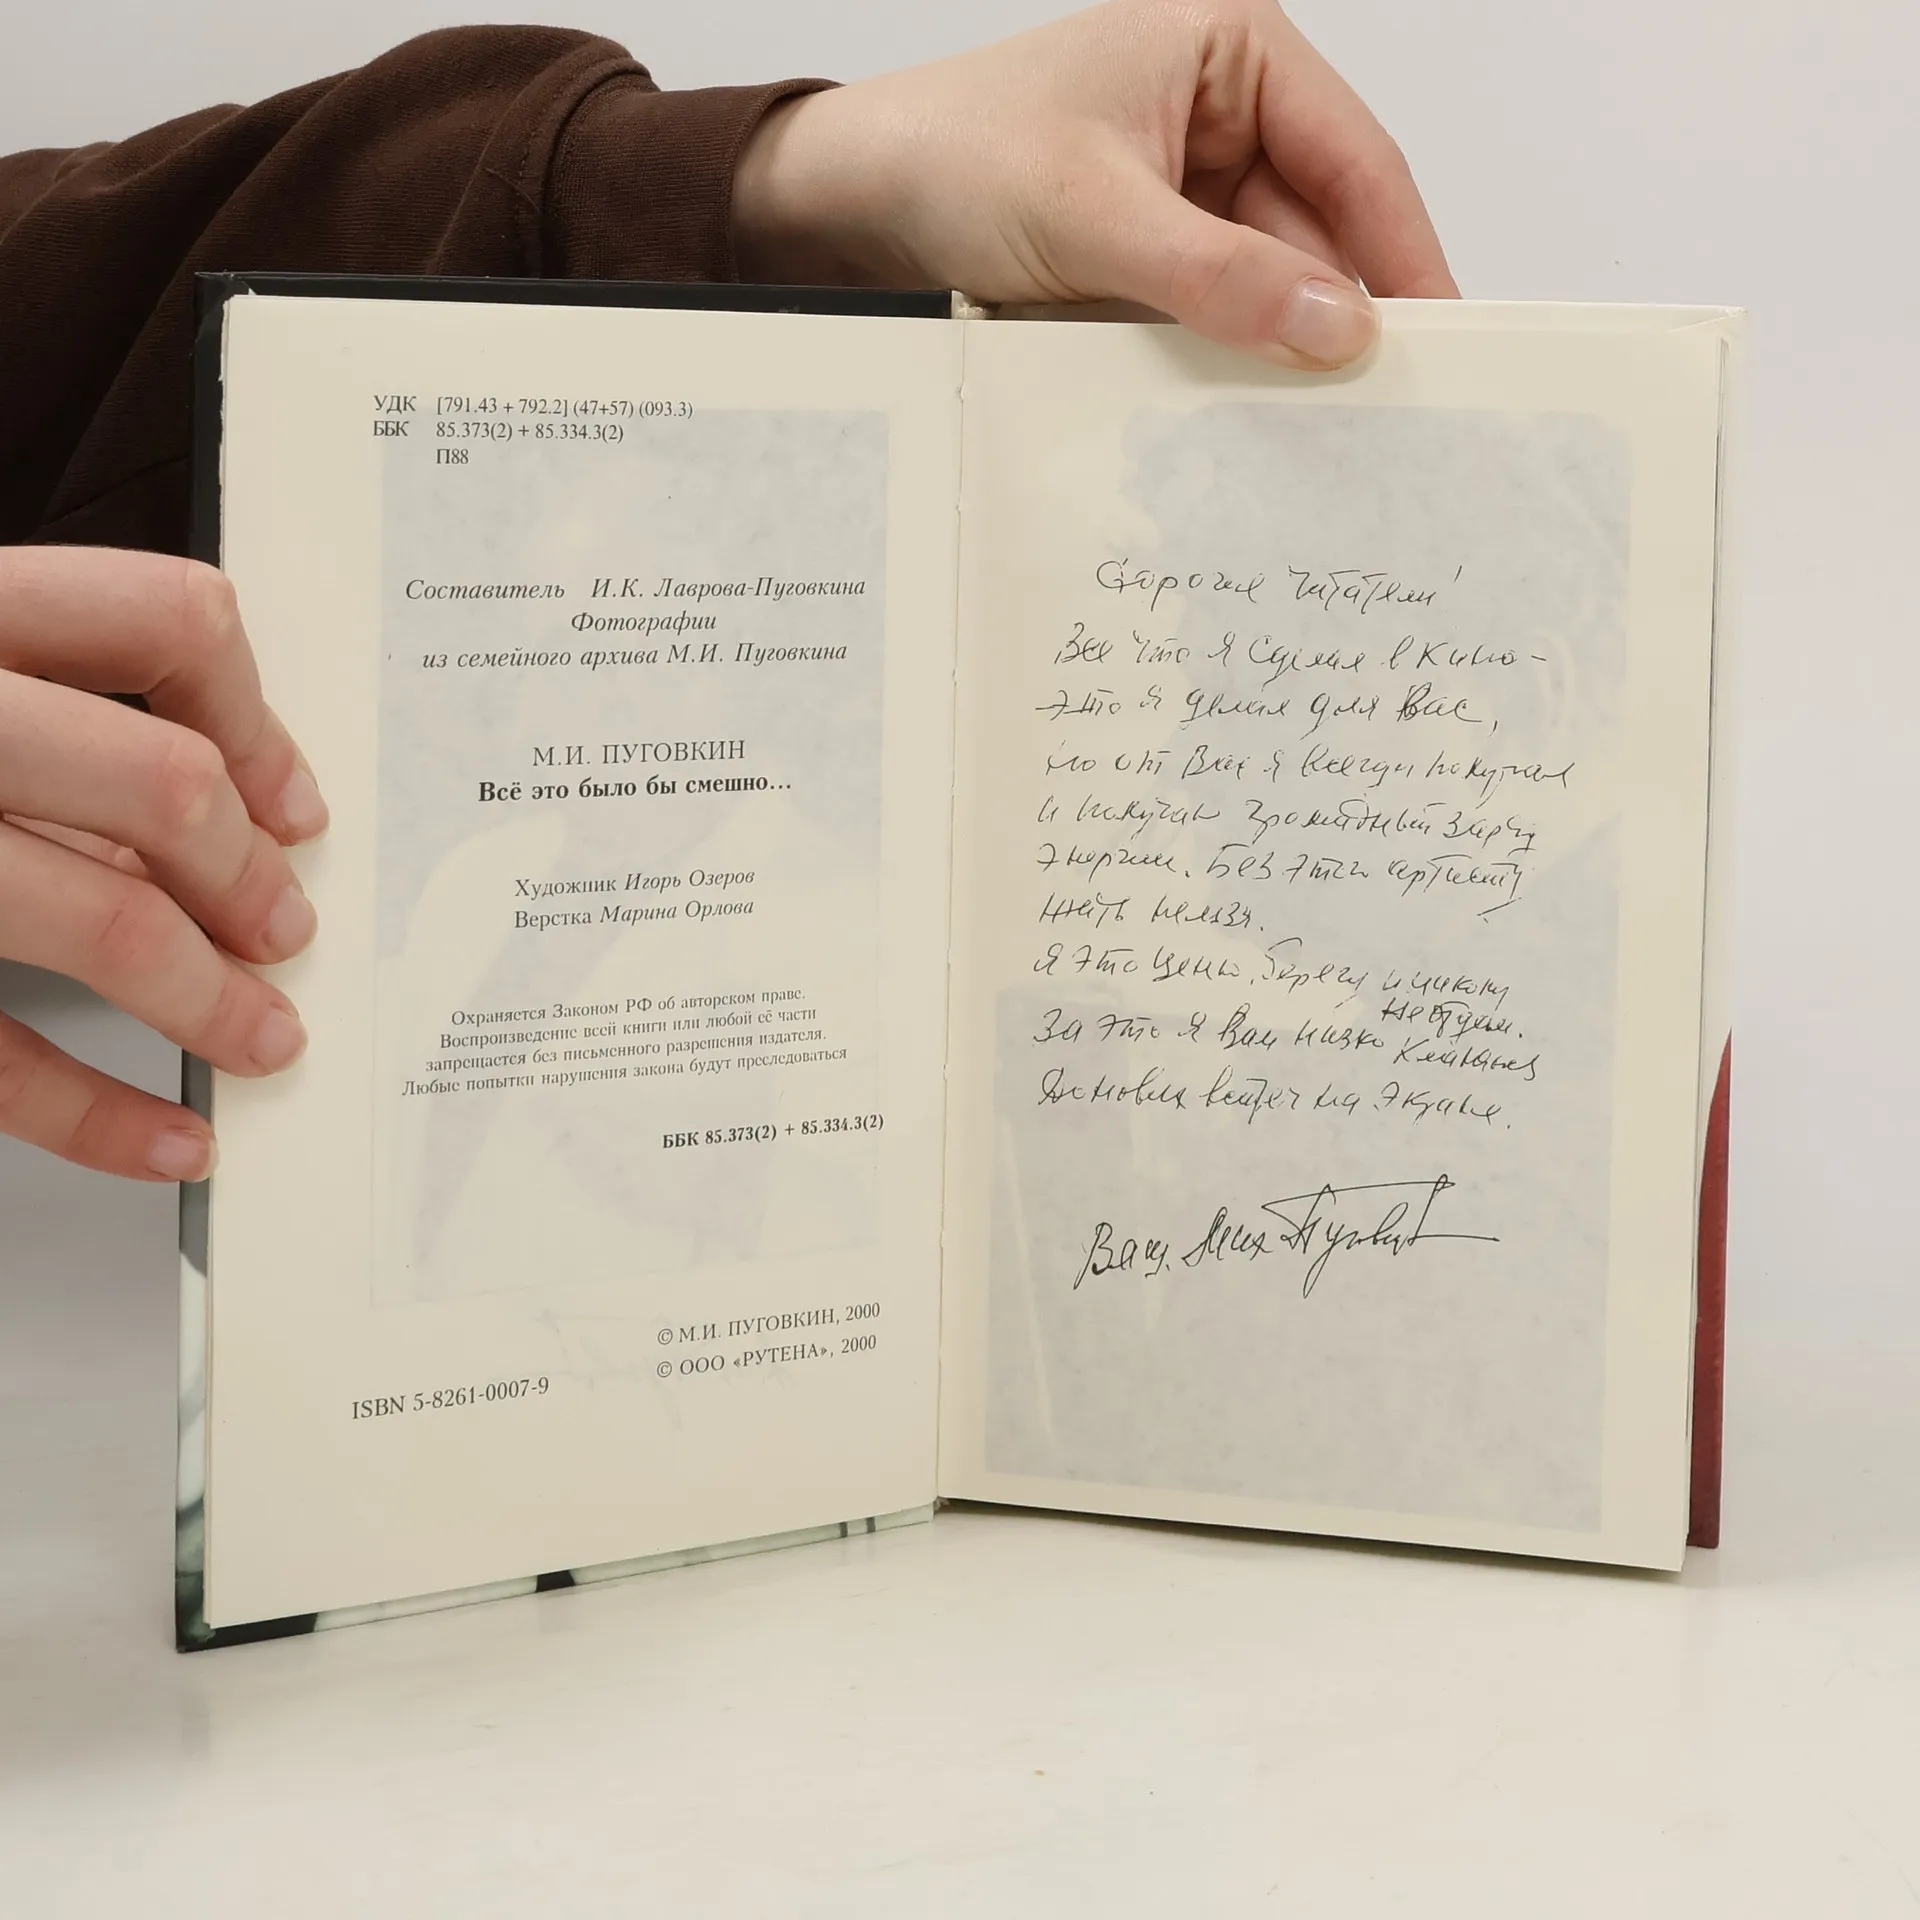 УДК [791.43 + 792.2] (47+57) (093.3)
ББК 85.373(2) + 85.334.3(2)
П88
Составитель И.К. Лаврова-Пуговкина
Фотографии
из семейного архива М.И. Пуговкина
М.И. ПУГОВКИН
Всё это было бы смешно...
Художник Игорь Озеров
Верстка Марина Орлова
Охраняется Законом РФ об авторском праве.
Воспроизведение всей книги или любой её части
запрещается без письменного разрешения издателя.
Любые попытки нарушения закона будут преследоваться
ББК 85.373(2) + 85.334.3(2)
© М.И. ПУГОВКИН, 2000
© ООО «РУТЕНА», 2000
ISBN 5-8261-0007-9
Дорогие читатели!
Все что я сделал в кино -
это я делал для Вас,
но от Вас я всегда получал
и получаю громадный заряд
энергии. Без этого артисту
жить нельзя.
Я это ценю, берегу и никому
не отдам.
За это я Вам низко кланяюсь
До новых встреч на экране.
Ваш Мих Пуговкин